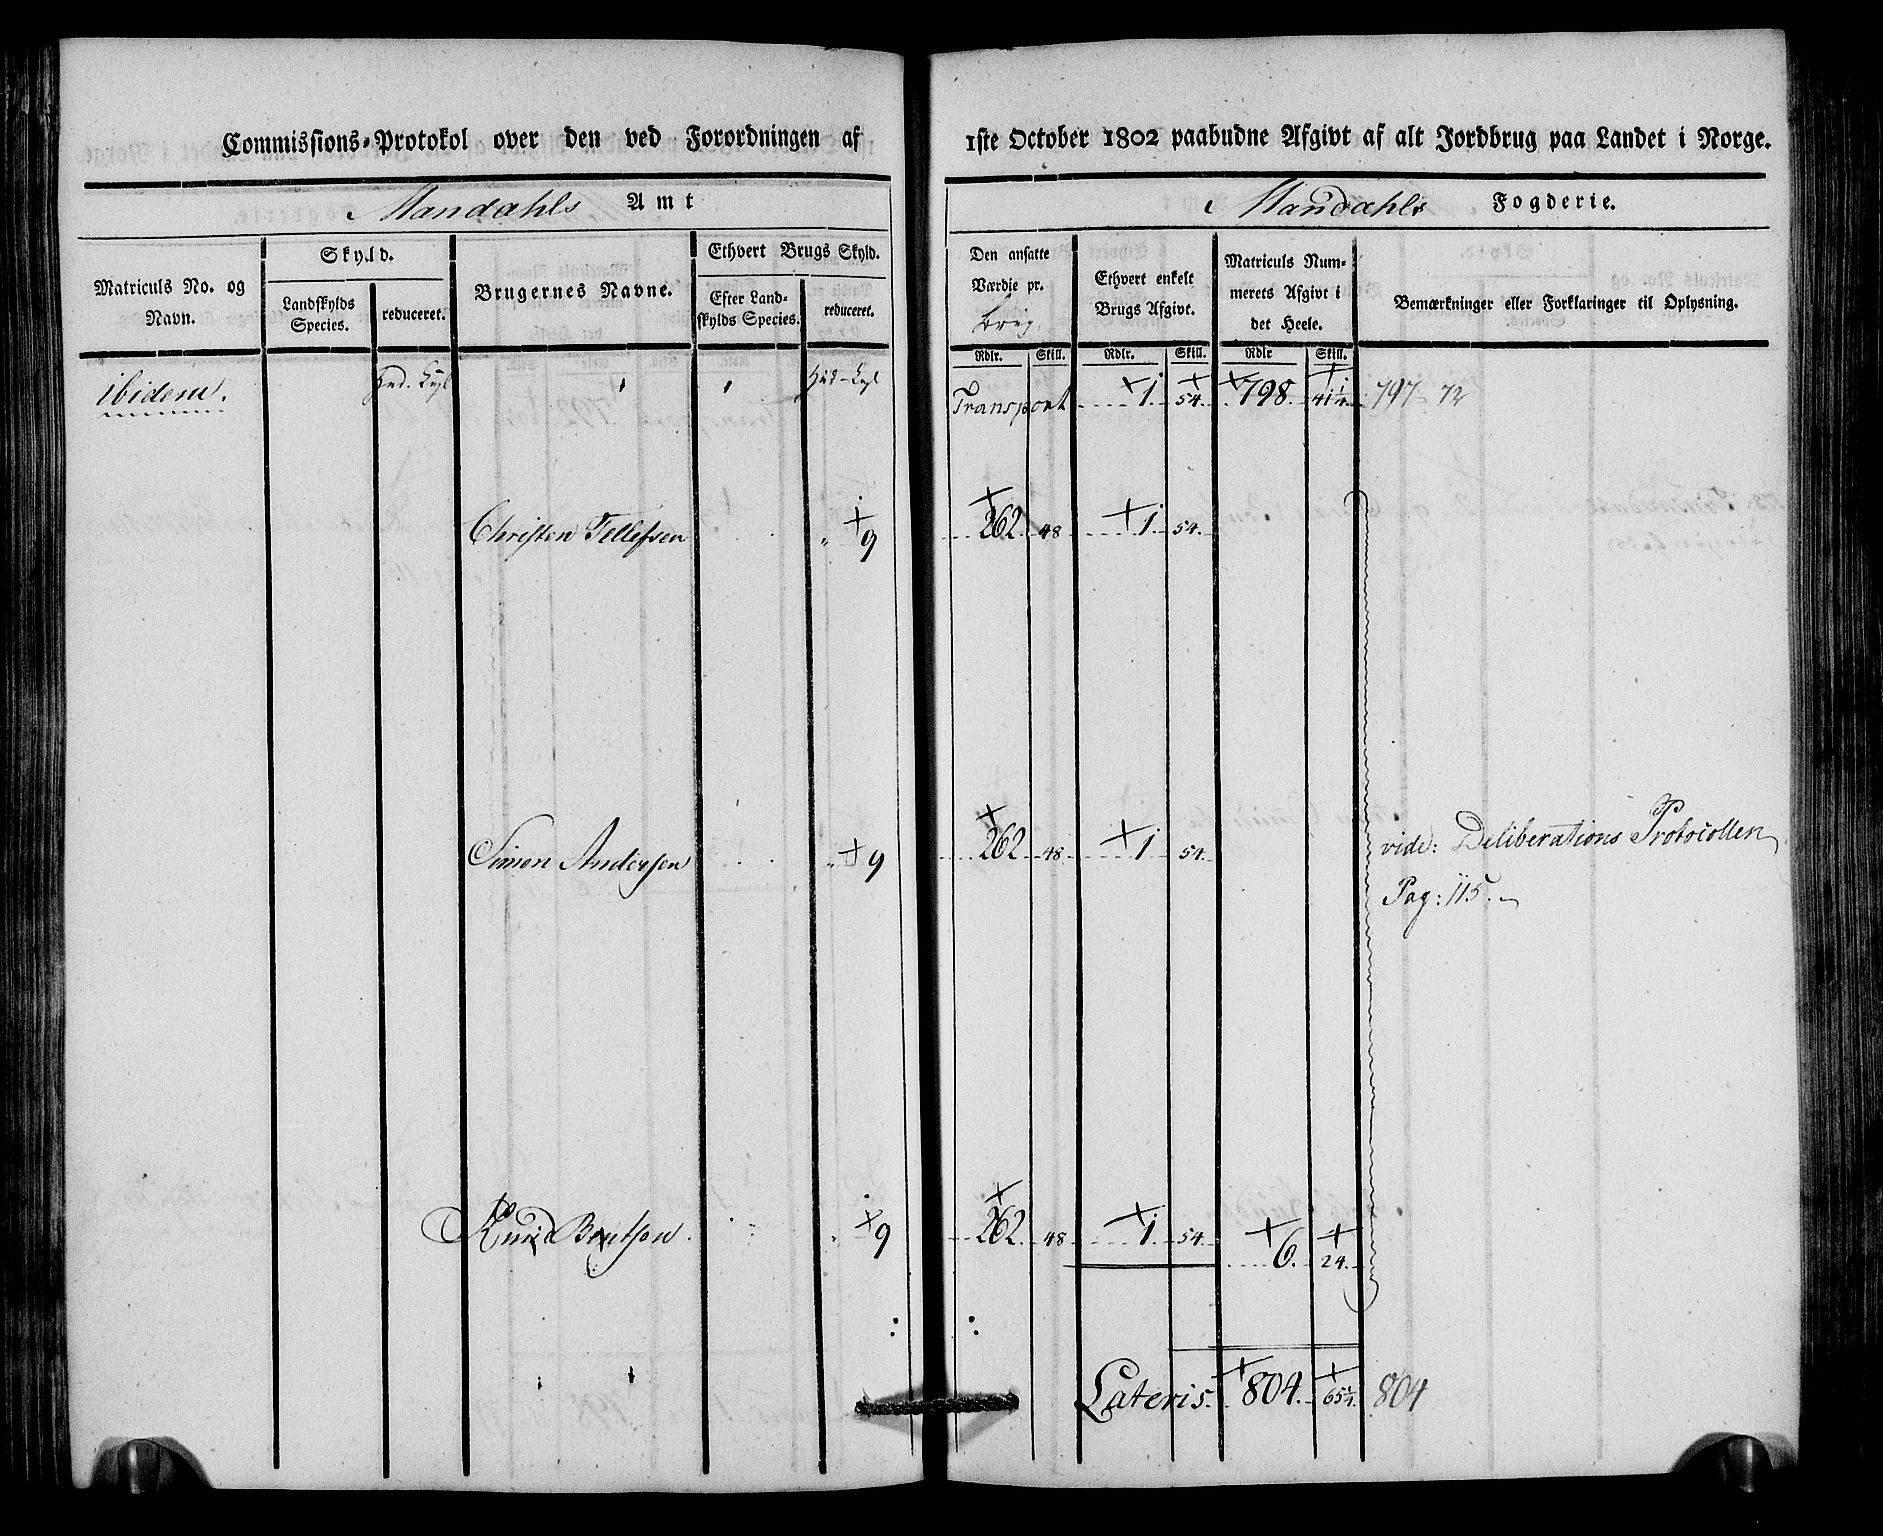 Commissions-Protokol over den ved Forordningen af 1ste October 1802 paabudne Afgivt af alt Jordbrug paa Landet i Norge.
Mandahls Amt
Mandahls Fogderie.
Matriculs No. og Navn.
Skyld.
Landskylds Species.
reduceret.
Brugernes Navne.
Ethvert Brugs Skyld.
Efter Landskylds Species.
reduceret.
Den ansatte Værdie pr. Brug.
Rdlr. Skill.
Ethvert enkelt Brugs Afgivt.
Rdlr. Skill.
Matriculs Nummerets Afgivt i det Heele.
Rdlr Skill.
Bemærkninger eller Forklaringer til Oplysning.
ibidem. Hud. Hud- Transport 1. 54. 798. 41¼. 797 72
Christen Tellefsen " 9 262. 48 1. 54.
Simon Andersen " 9 262 48 1 54. vide: Deliberations Protocollen
Pag: 115.
Knud Bentsen. " 9 262. 48 1. 54. 6. 24.
Lateris. 804. 65¼. 804